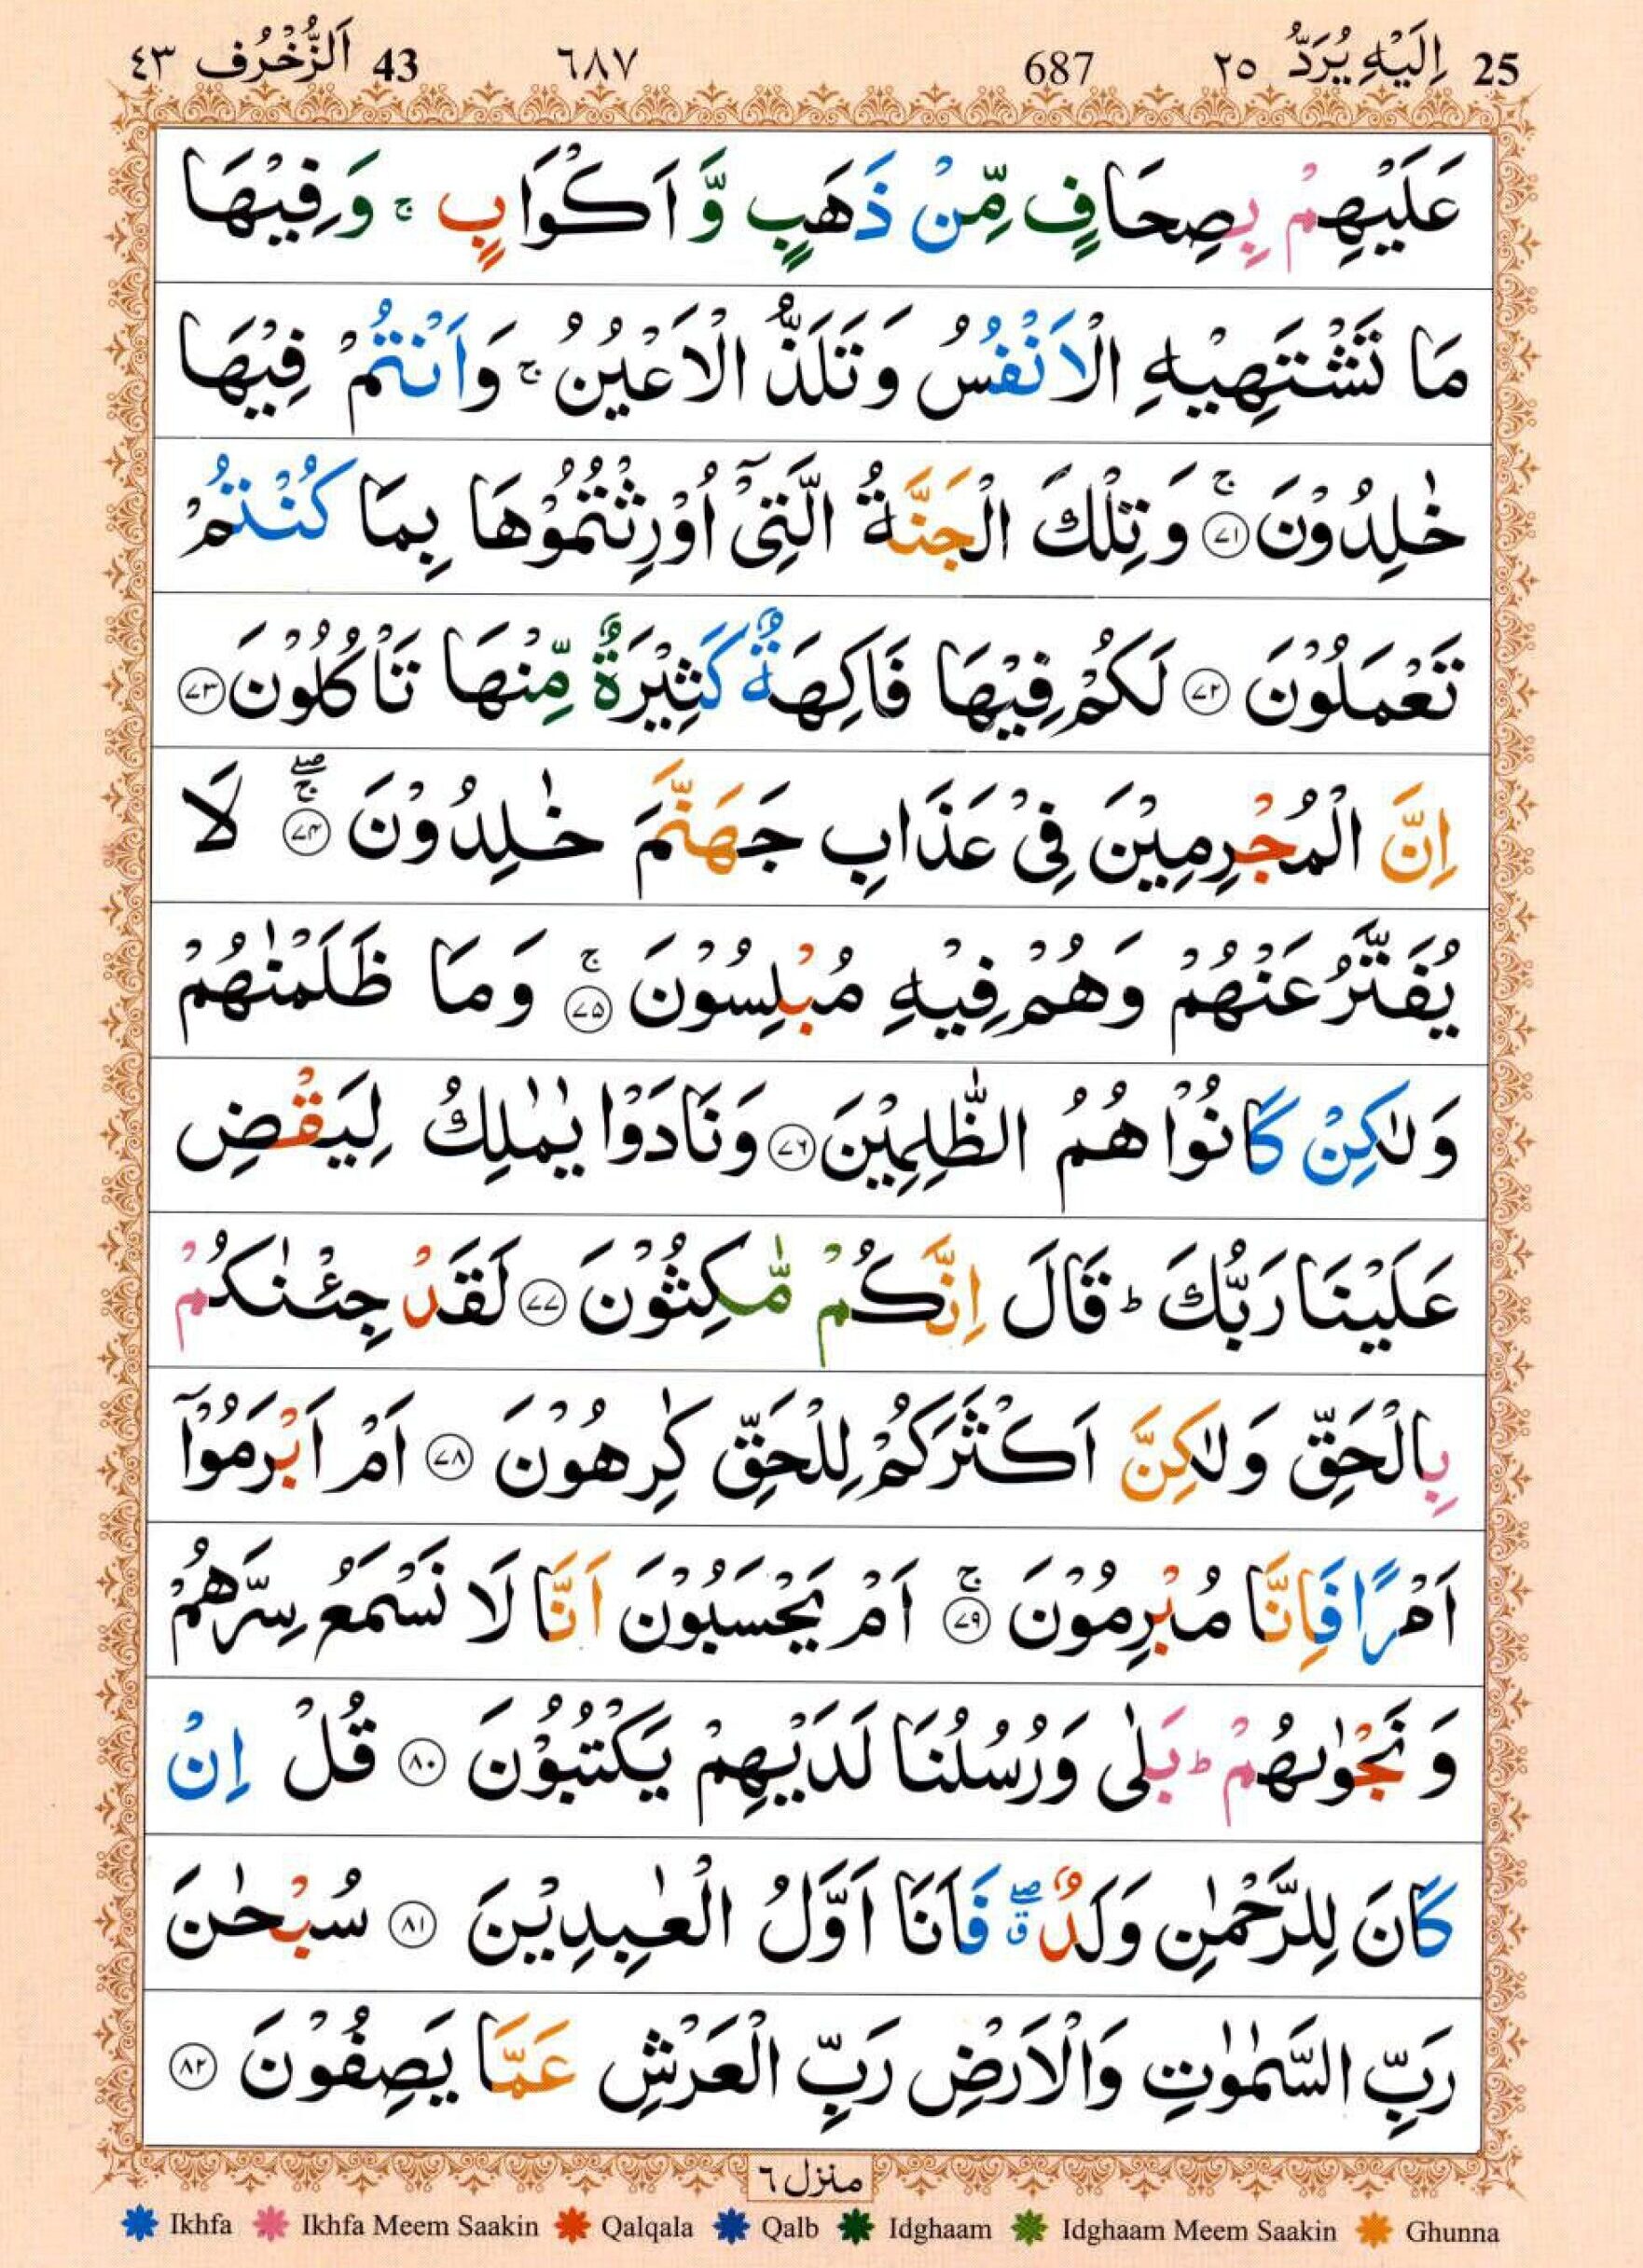 25 اِلَيْهِ يُرَدُّ ٢٥ 687 ٦٨٧ 43 اَلزُّخْرُف ٤٣
عَلَيْهِمْ بِصِحَافٍ مِّنْ ذَهَبٍ وَّاَكْوَابٍ ۚ وَفِيْهَا
مَا تَشْتَهِيْهِ الْاَنْفُسُ وَتَلَذُّ الْاَعْيُنُ ۚ وَاَنْتُمْ فِيْهَا
خٰلِدُوْنَ ۚ‏﴿۷۱﴾ وَتِلْكَ الْجَنَّةُ الَّتِيْٓ اُوْرِثْتُمُوْهَا بِمَا كُنْتُمْ
تَعْمَلُوْنَ ﴿۷۲﴾ لَكُمْ فِيْهَا فَاكِهَةٌ كَثِيْرَةٌ مِّنْهَا تَاْكُلُوْنَ ﴿۷۳﴾
اِنَّ الْمُجْرِمِيْنَ فِيْ عَذَابِ جَهَنَّمَ خٰلِدُوْنَ ۚۖ ﴿۷۴﴾ لَا
يُفَتَّرُ عَنْهُمْ وَهُمْ فِيْهِ مُبْلِسُوْنَ ۚ ﴿۷۵﴾ وَمَا ظَلَمْنٰهُمْ
وَلٰكِنْ كَانُوْا هُمُ الظّٰلِمِيْنَ ﴿۷۶﴾ وَنَادَوْا يٰمٰلِكُ لِيَقْضِ
عَلَيْنَا رَبُّكَ ؕ قَالَ اِنَّكُمْ مّٰكِثُوْنَ ﴿۷۷﴾ لَقَدْ جِئْنٰكُمْ
بِالْحَقِّ وَلٰكِنَّ اَكْثَرَكُمْ لِلْحَقِّ كٰرِهُوْنَ ﴿۷۸﴾ اَمْ اَبْرَمُوْٓا
اَمْرًا فَاِنَّا مُبْرِمُوْنَ ۚ ﴿۷۹﴾ اَمْ يَحْسَبُوْنَ اَنَّا لَا نَسْمَعُ سِرَّهُمْ
وَنَجْوٰىهُمْ ؕ بَلٰى وَرُسُلُنَا لَدَيْهِمْ يَكْتُبُوْنَ ﴿۸۰﴾ قُلْ اِنْ
كَانَ لِلرَّحْمٰنِ وَلَدٌ ۖق فَاَنَا اَوَّلُ الْعٰبِدِيْنَ ﴿۸۱﴾ سُبْحٰنَ
رَبِّ السَّمٰوٰتِ وَالْاَرْضِ رَبِّ الْعَرْشِ عَمَّا يَصِفُوْنَ ﴿۸۲﴾
منزل ٦
Ikhfa Ikhfa Meem Saakin Qalqala Qalb Idghaam Idghaam Meem Saakin Ghunna